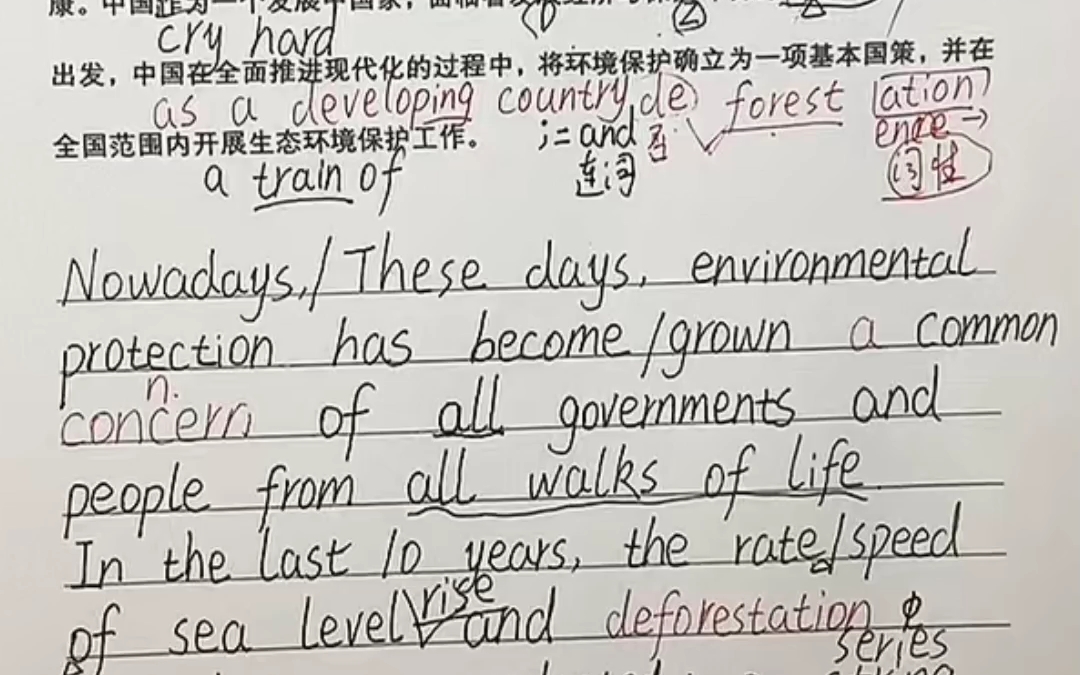 康。中国作为一个发展中国家，面临着发展经济与保
① ②
cry hard
出发，中国在全面推进现代化的过程中，将环境保护确立为一项基本国策，并在
as a developing country, de forest ation
全国范围内开展生态环境保护工作。 ; = and 否 ence →
a train of 连词 词性
Nowadays,/These days, environmental
protection has become/grown a common
n.
concern of all governments and
people from all walks of life.
In the last 10 years, the rate/speed
rise
of sea level and deforestation
series